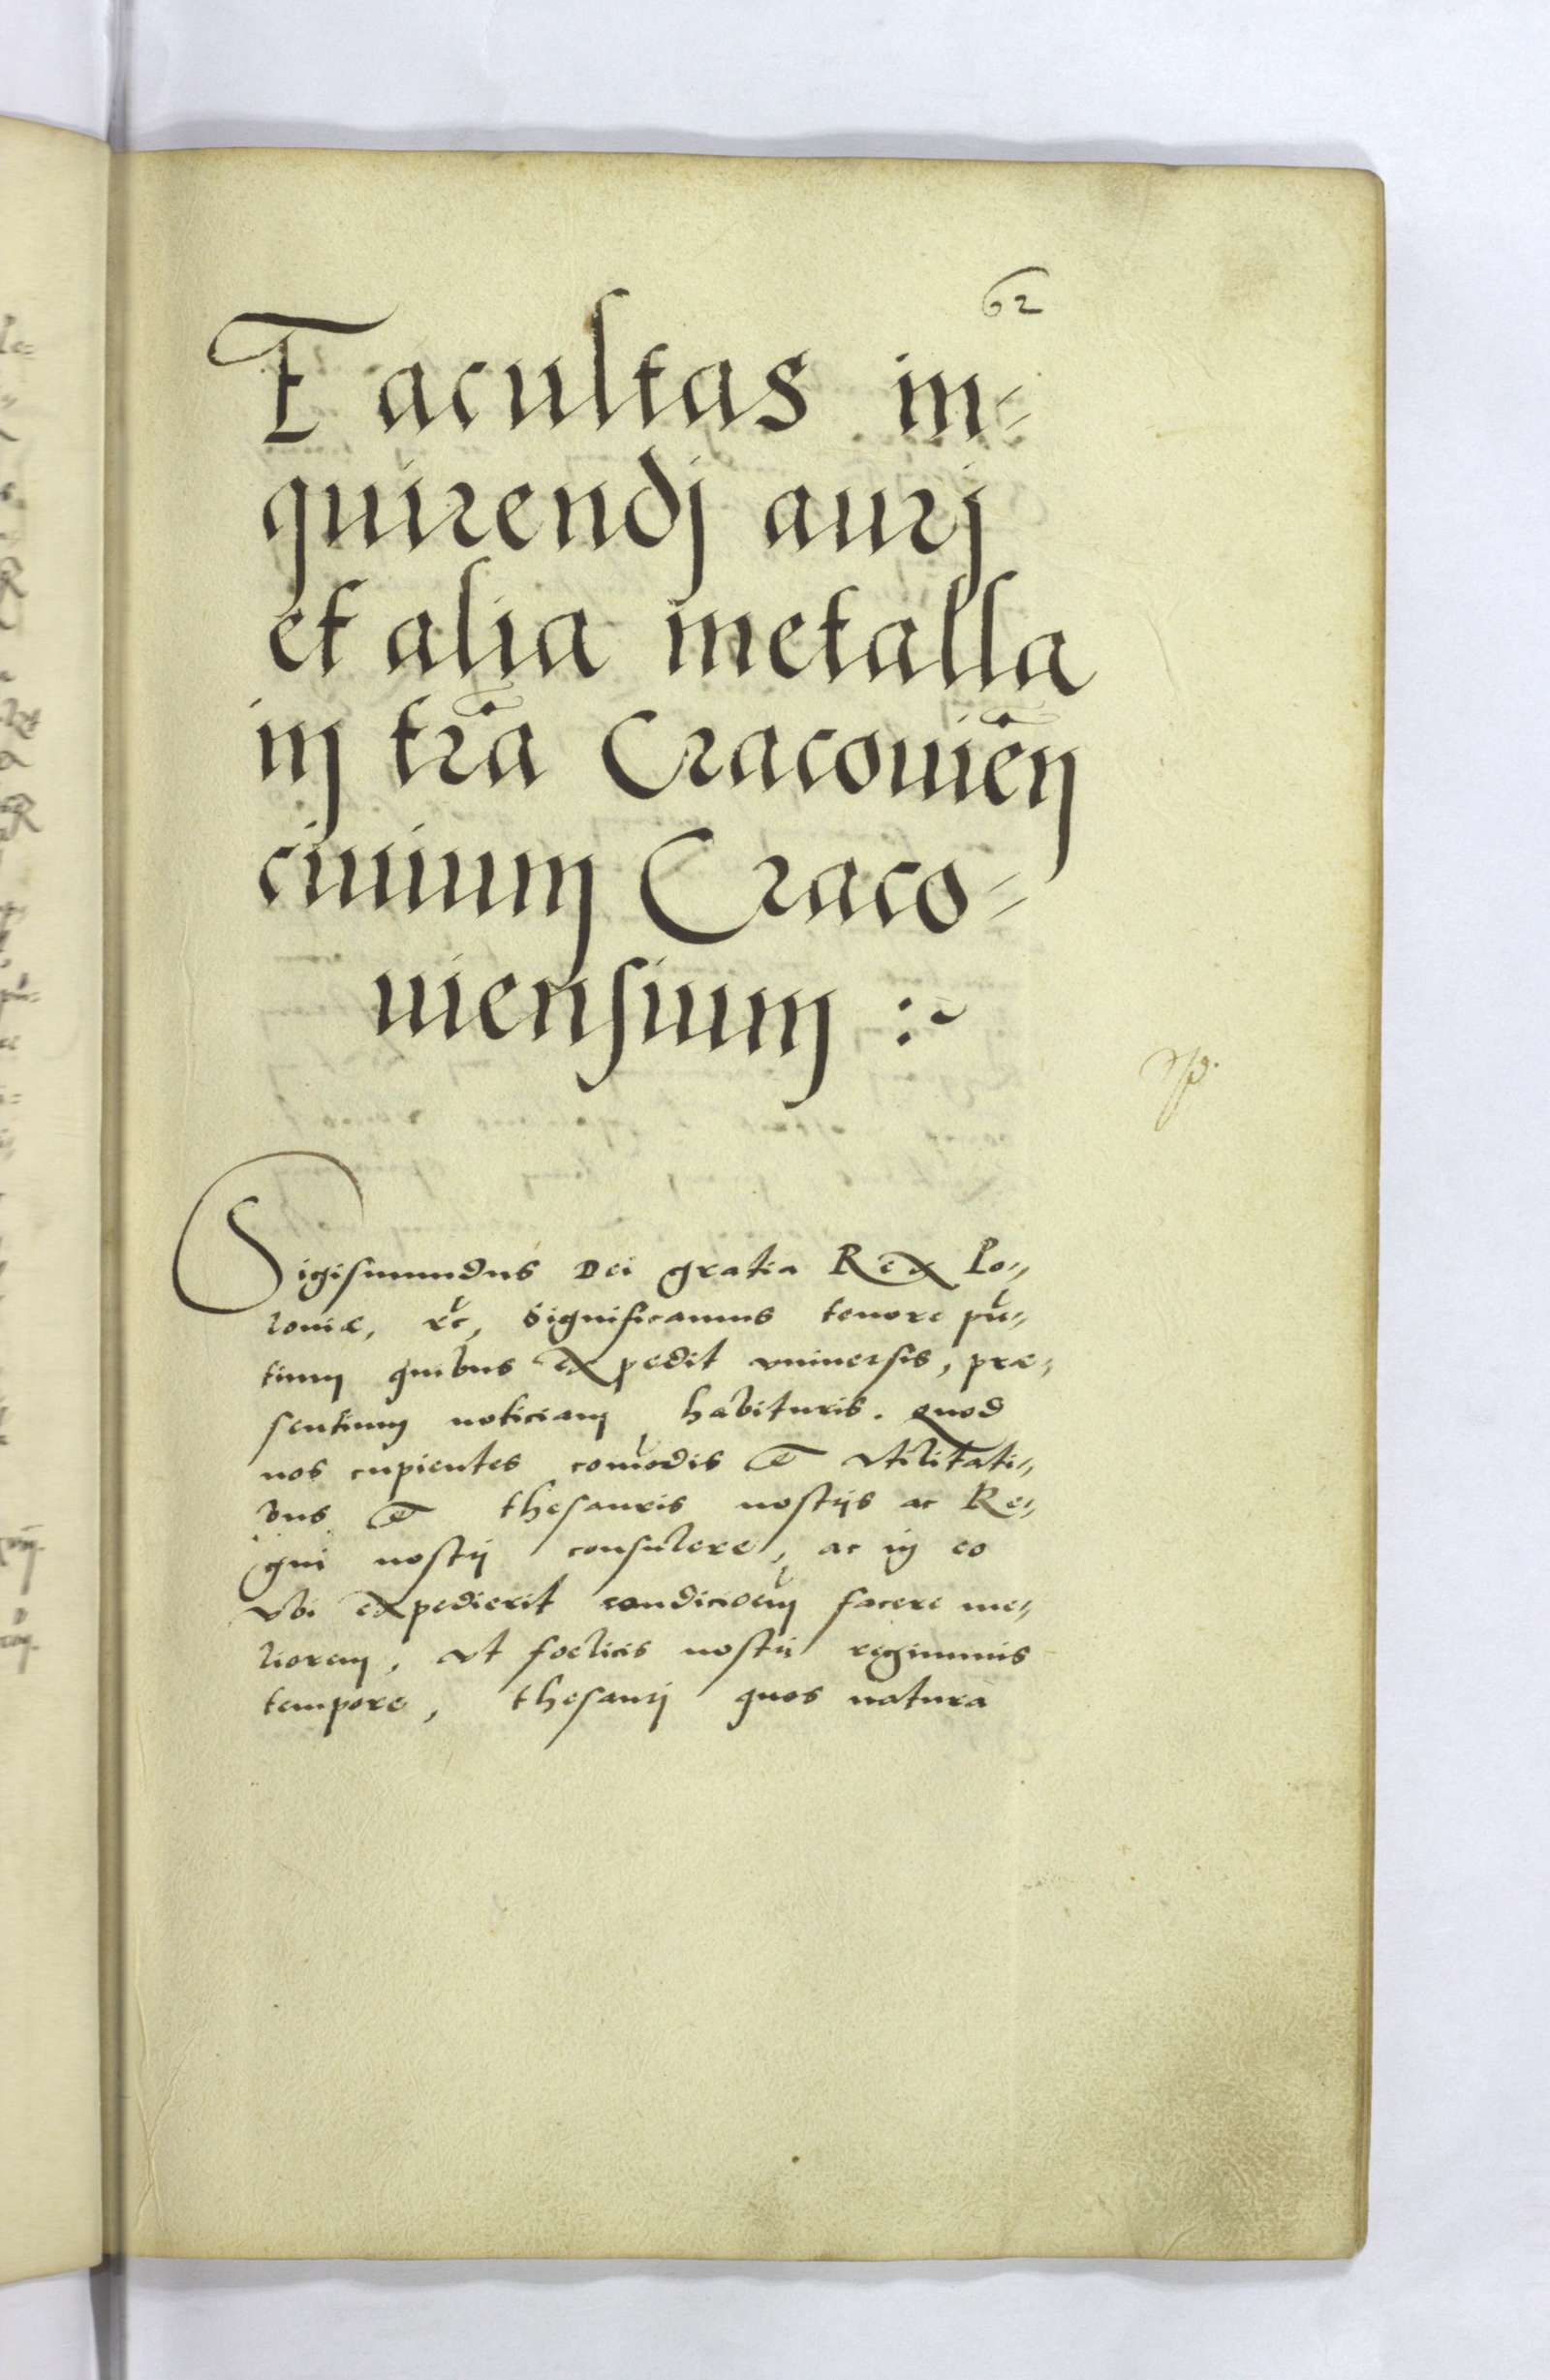 62
Facultas in=
quirendj aurj
et alia metalla
in tr̃a Cracouień
ciuium Craco=
uiensium :~
Sigismundus Dei gratia Rex Po=
loniæ, &c, Significamus tenore pñ=
tium quibus expedit vniuersis, præ=
sentium noticiam habituris. Quod
nos cupientes com̃odis et vtilitati=
bus et thesauris nostris ac Re=
gni nostri consulere, ac in eo
vbi expedierit condicioẽm facere me=
liorem, vt foelicis nostri regiminis
tempore, thesaurj quos natura